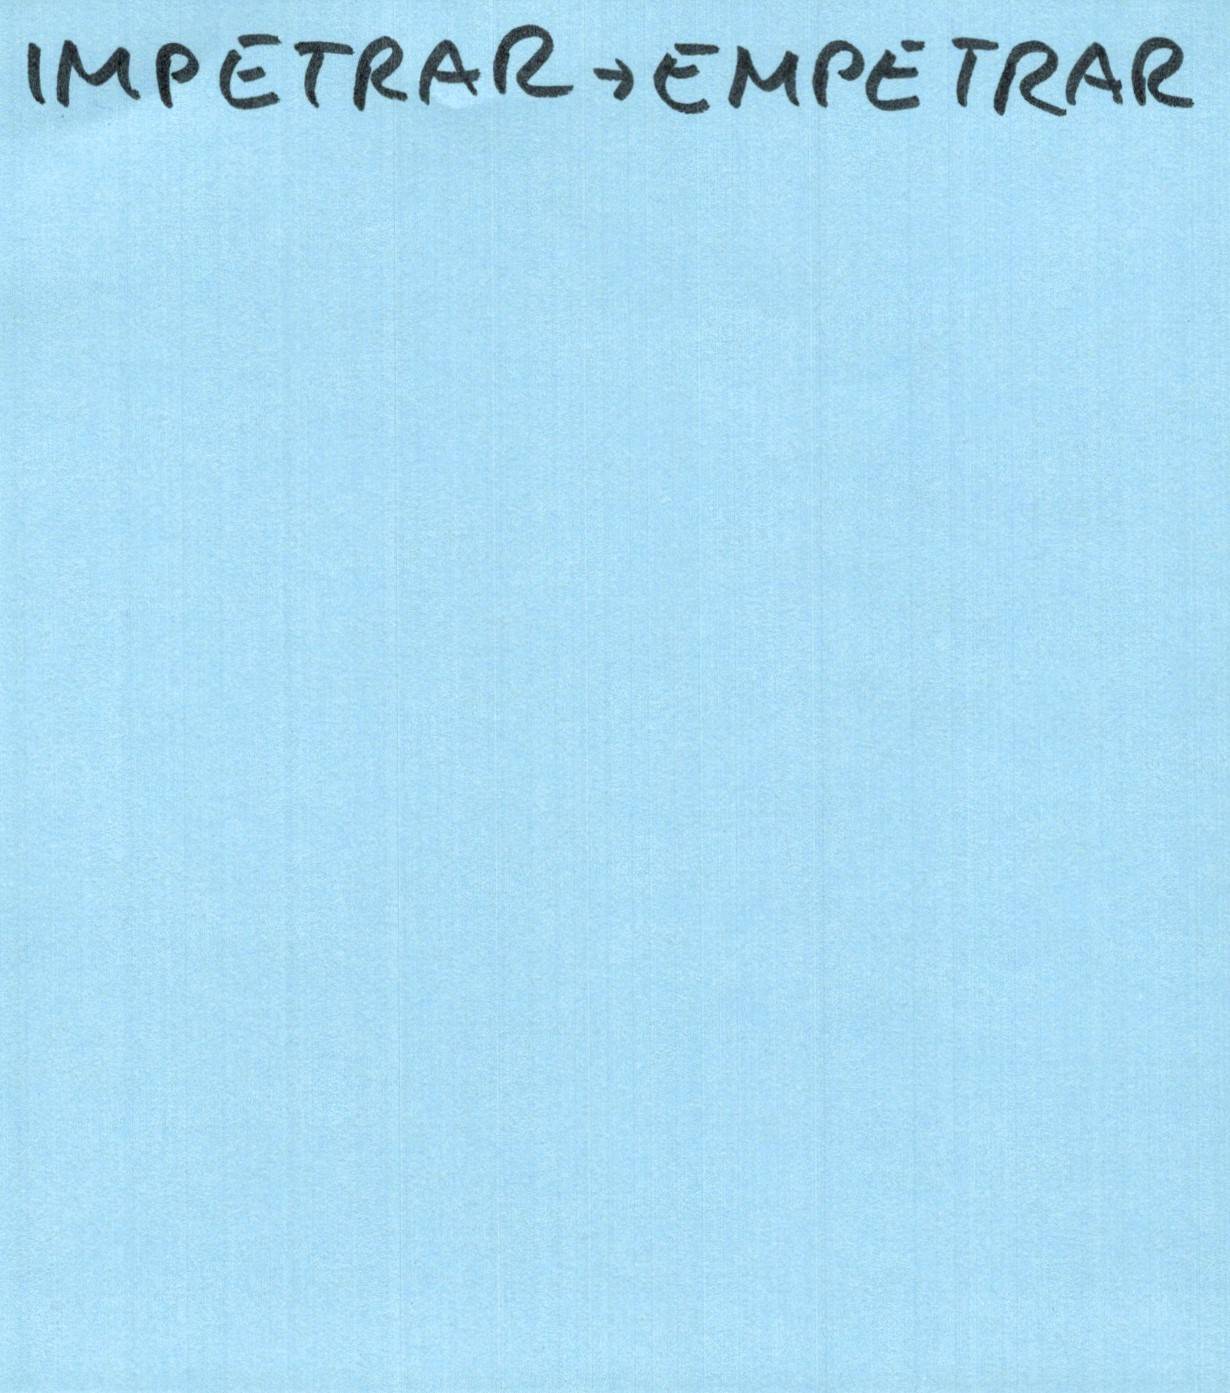 IMPETRAR → EMPETRAR